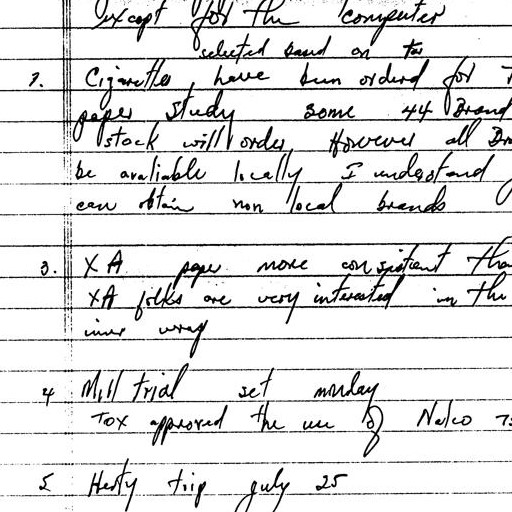 except for the computer
selected based on tar
2. Cigarettes have been ordered for
paper study some 44 Brand
stock will order, However all Bra
be avaliable locally I understand
can obtain non local brands
3. XA paper more consistent tha
XA folks are very interested in the
inner wrap
4 Mill trial set monday
Tox approved the use of Nalco 75
5 Hesty trip july 25